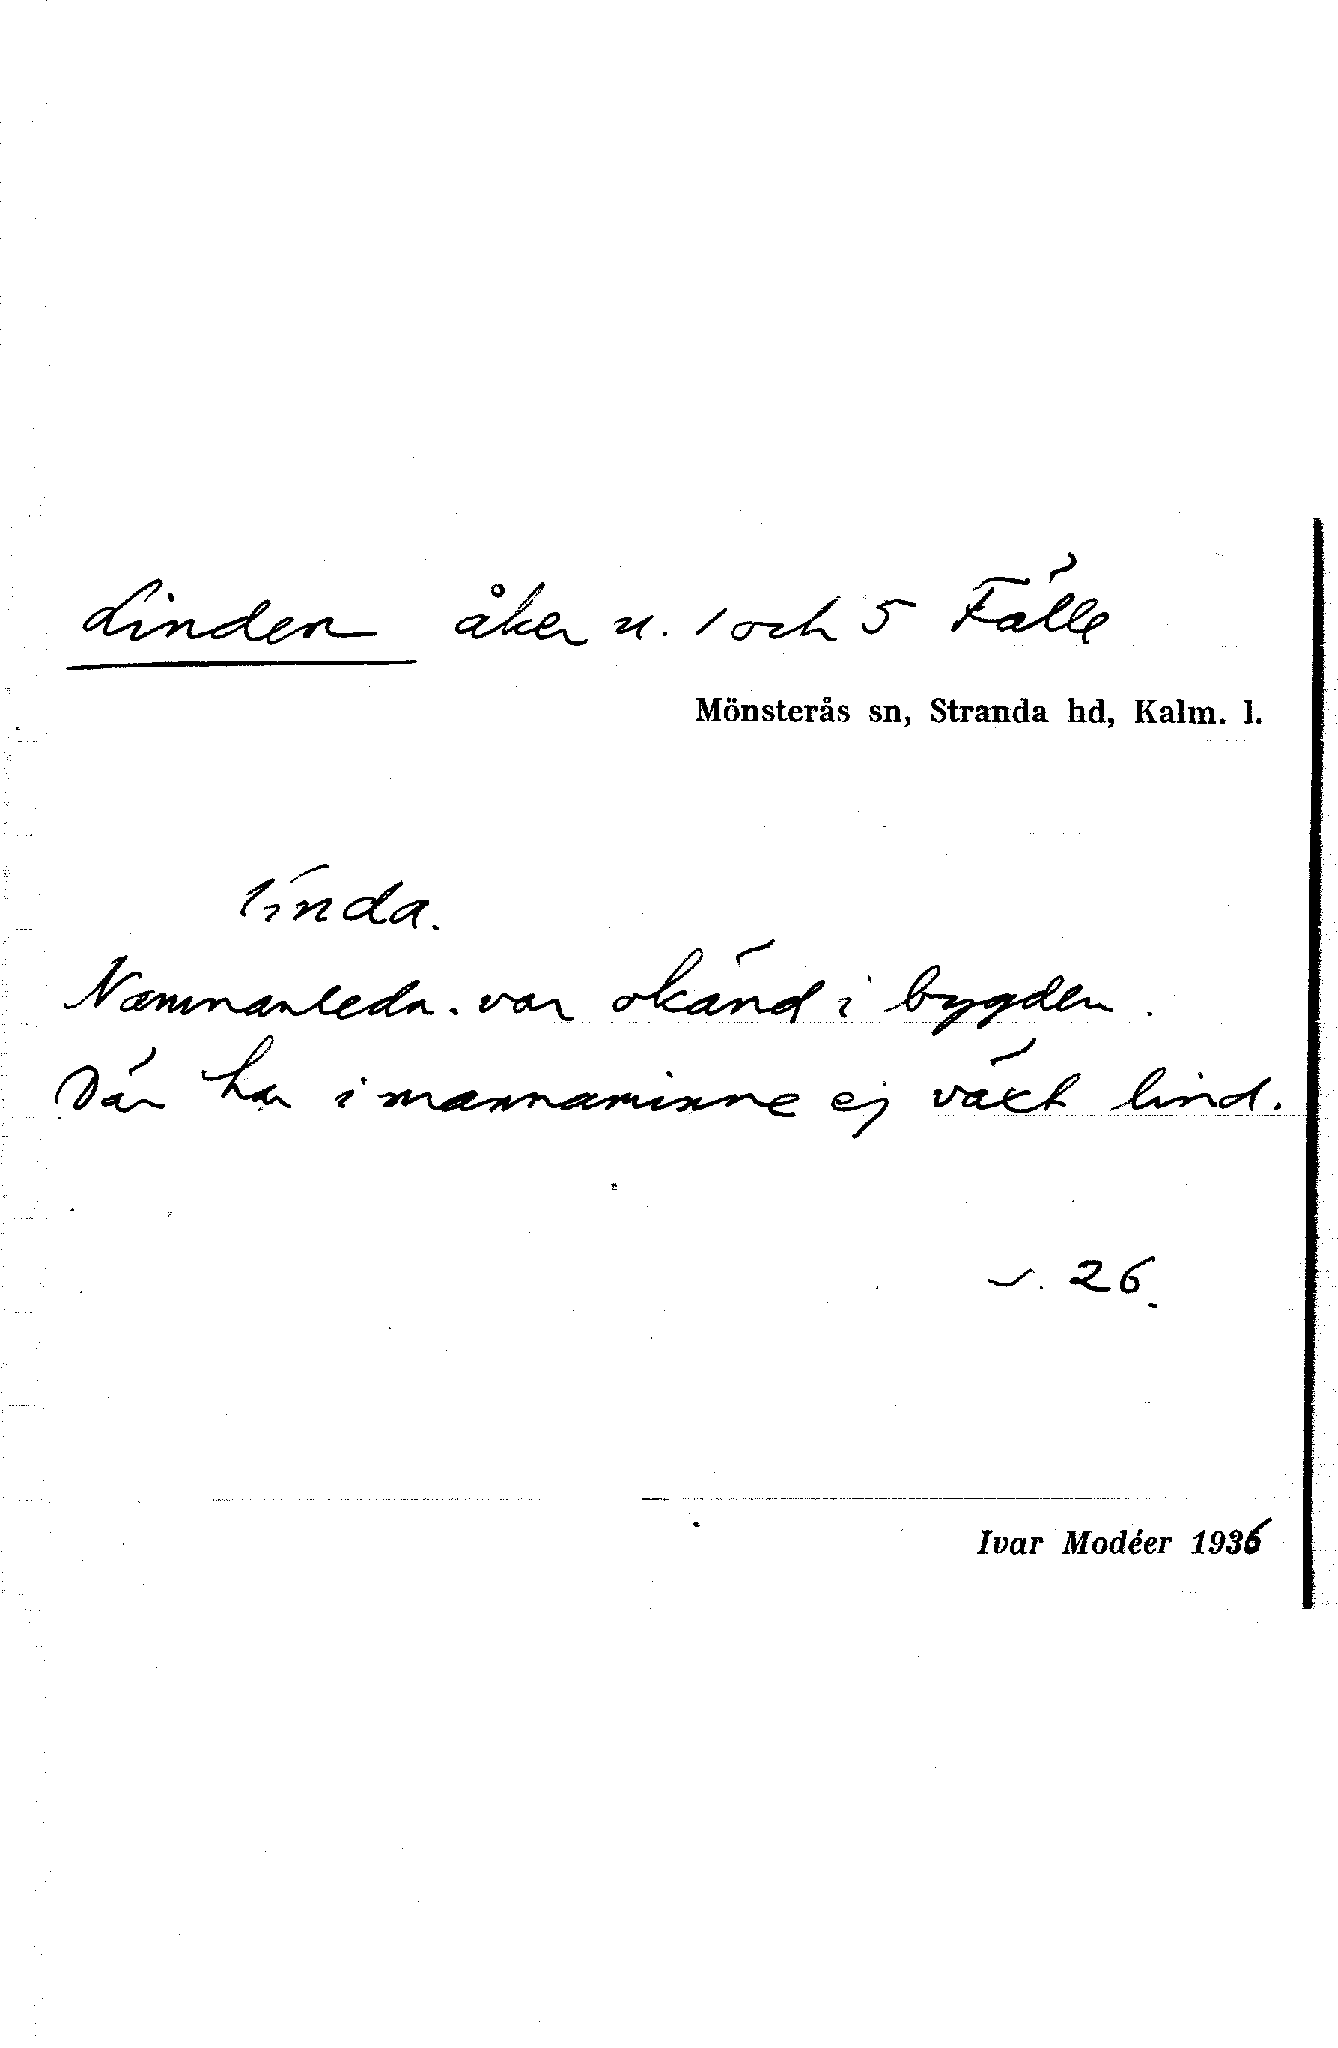 Linden åker n. 1 och 5 Fälle
Mönsterås sn, Stranda hd, Kalm. l.
linda.
Namnanledn. var okänd i bygden.
Där har i mannaminne ej växt lind.
s. 26.
Ivar Modéer 1936